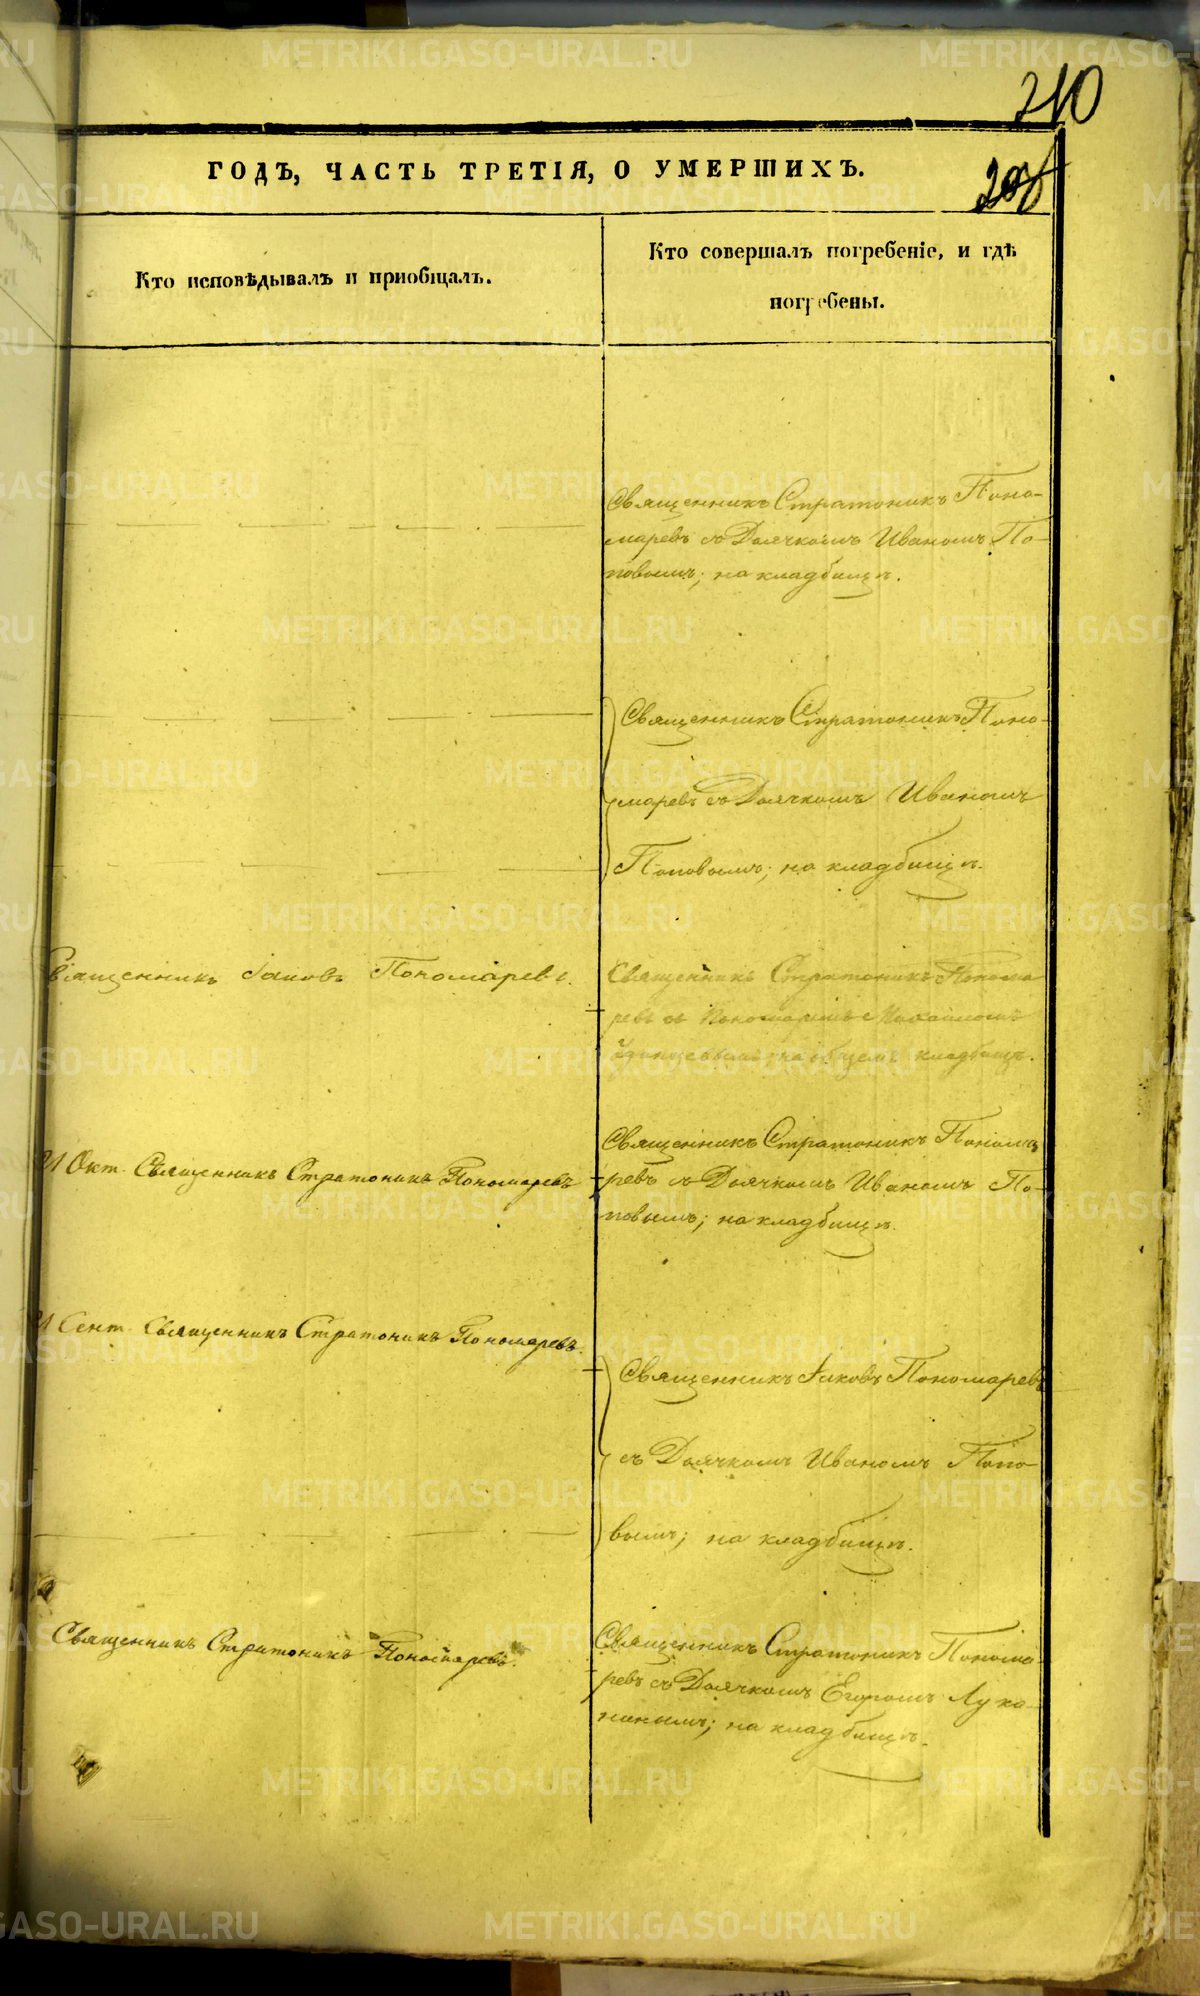 210
ГОДЪ, ЧАСТЬ ТРЕТІЯ, О УМЕРШИХЪ.
208
Кто исповѣдывалъ и пріобщалъ.
Кто совершалъ погребеніе, и гдѣ
погребены.
Священникъ Стратоникъ Поно-
маревъ съ Дьячкомъ Иваномъ По-
повымъ; на кладбищѣ.
Священникъ Стратоникъ Поно-
маревъ съ Дьячкомъ Иваномъ
Поповымъ; на кладбищѣ.
Священникъ Іаковъ Пономаревъ.
Священникъ Стратоникъ Понома
ревъ съ Пономаремъ Михаиломъ
на общемъ кладбищѣ.
21 Окт. Священникъ Стратоникъ Пономаревъ
Священникъ Стратоникъ Понома
ревъ съ Дьячкомъ Иваномъ По-
повымъ; на кладбищѣ.
21 Сент. Священникъ Стратоникъ Пономаревъ.
Священникъ Іаковъ Пономаревъ
съ Дьячкомъ Иваномъ Попо-
вымъ; на кладбищѣ.
Священникъ Стратоникъ Пономаревъ.
Священникъ Стратоникъ Понома-
ревъ съ Дьячкомъ Егоромъ Лука-
нинымъ; на кладбищѣ.
METRIKI.GASO-URAL.RU